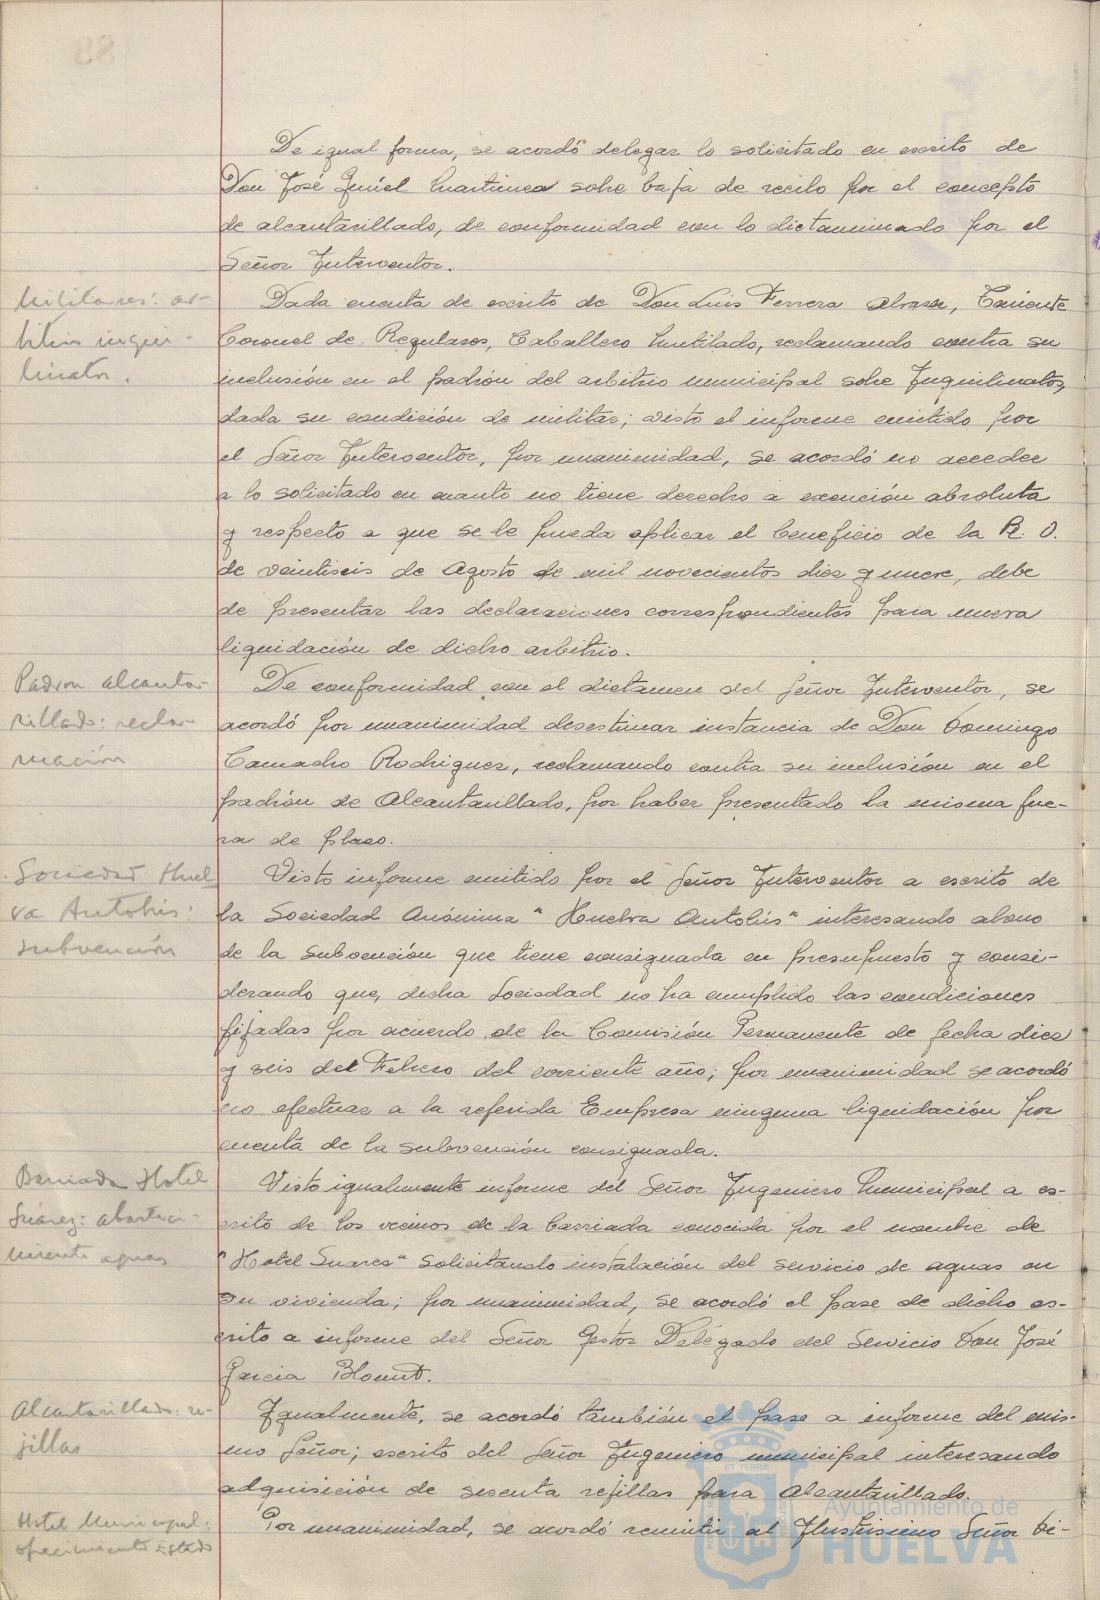 De igual forma, se acordó delegar lo solicitado en escrito de
Don José Martinez sobre baja de recibo por el concepto
de alcantarillado, de conformidad con lo dictaminado por el
Señor Interventor.
Militares: ar-
bitrio inqui-
linato.
Dada cuenta de escrito de Don Luis Ferrera Alvarez, Teniente
Coronel de Regulares, Caballero Mutilado, reclamando contra su
inclusión en el padrón del arbitrio municipal sobre Inquilinatos,
dada su condición de militar; visto el informe emitido por
el Señor Interventor, por unanimidad, se acordó no acceder
a lo solicitado en cuanto no tiene derecho a exención absoluta
y respecto a que se le pueda aplicar el beneficio de la R. O.
de veintiseis de Agosto de mil novecientos diez y nueve, debe
de presentar las declaraciones correspondientes para nueva
liquidación de dicho arbitrio.
Padron alcanta-
rillado: recla-
mación
De conformidad con el dictamen del Señor Interventor, se
acordó por unanimidad desestimar instancia de Don Domingo
Camacho Rodriguez, reclamando contra su inclusión en el
padrón de Alcantarillado, por haber presentado la misma fue-
ra de plazo.
Sociedad Huel
va Autobús:
subvención
Visto informe emitido por el Señor Interventor a escrito de
la Sociedad Anónima "Huelva Autobús" interesando abono
de la subvención que tiene consignada en presupuesto y consi-
derando que, dicha Sociedad no ha cumplido las condiciones
fijadas por acuerdo de la Comisión Permanente de fecha diez
y seis del Febrero del corriente año; por unanimidad se acordó
no efectuar a la referida Empresa ninguna liquidación por
cuenta de la subvención consignada.
Barriada Hotel
Suárez: abasteci-
miento aguas
Visto igualmente informe del Señor Ingeniero Municipal a es-
crito de los vecinos de la barriada conocida por el nombre de
"Hotel Suarez" solicitando instalación del servicio de aguas en
su vivienda; por unanimidad, se acordó el pase de dicho es-
crito a informe del Señor Gestor Delegado del Servicio Don José
Garcia Blount.
Alcantarillado: re-
jillas
Igualmente, se acordó también el pase a informe del mis-
mo Señor; escrito del Señor Ingeniero municipal interesando
adquisición de sesenta rejillas para Alcantarillado.
Hotel Municipal:
ofrecimiento Estado
Por unanimidad, se acordó remitir al Ilustrisimo Señor Di-
Ayuntamiento de
HUELVA